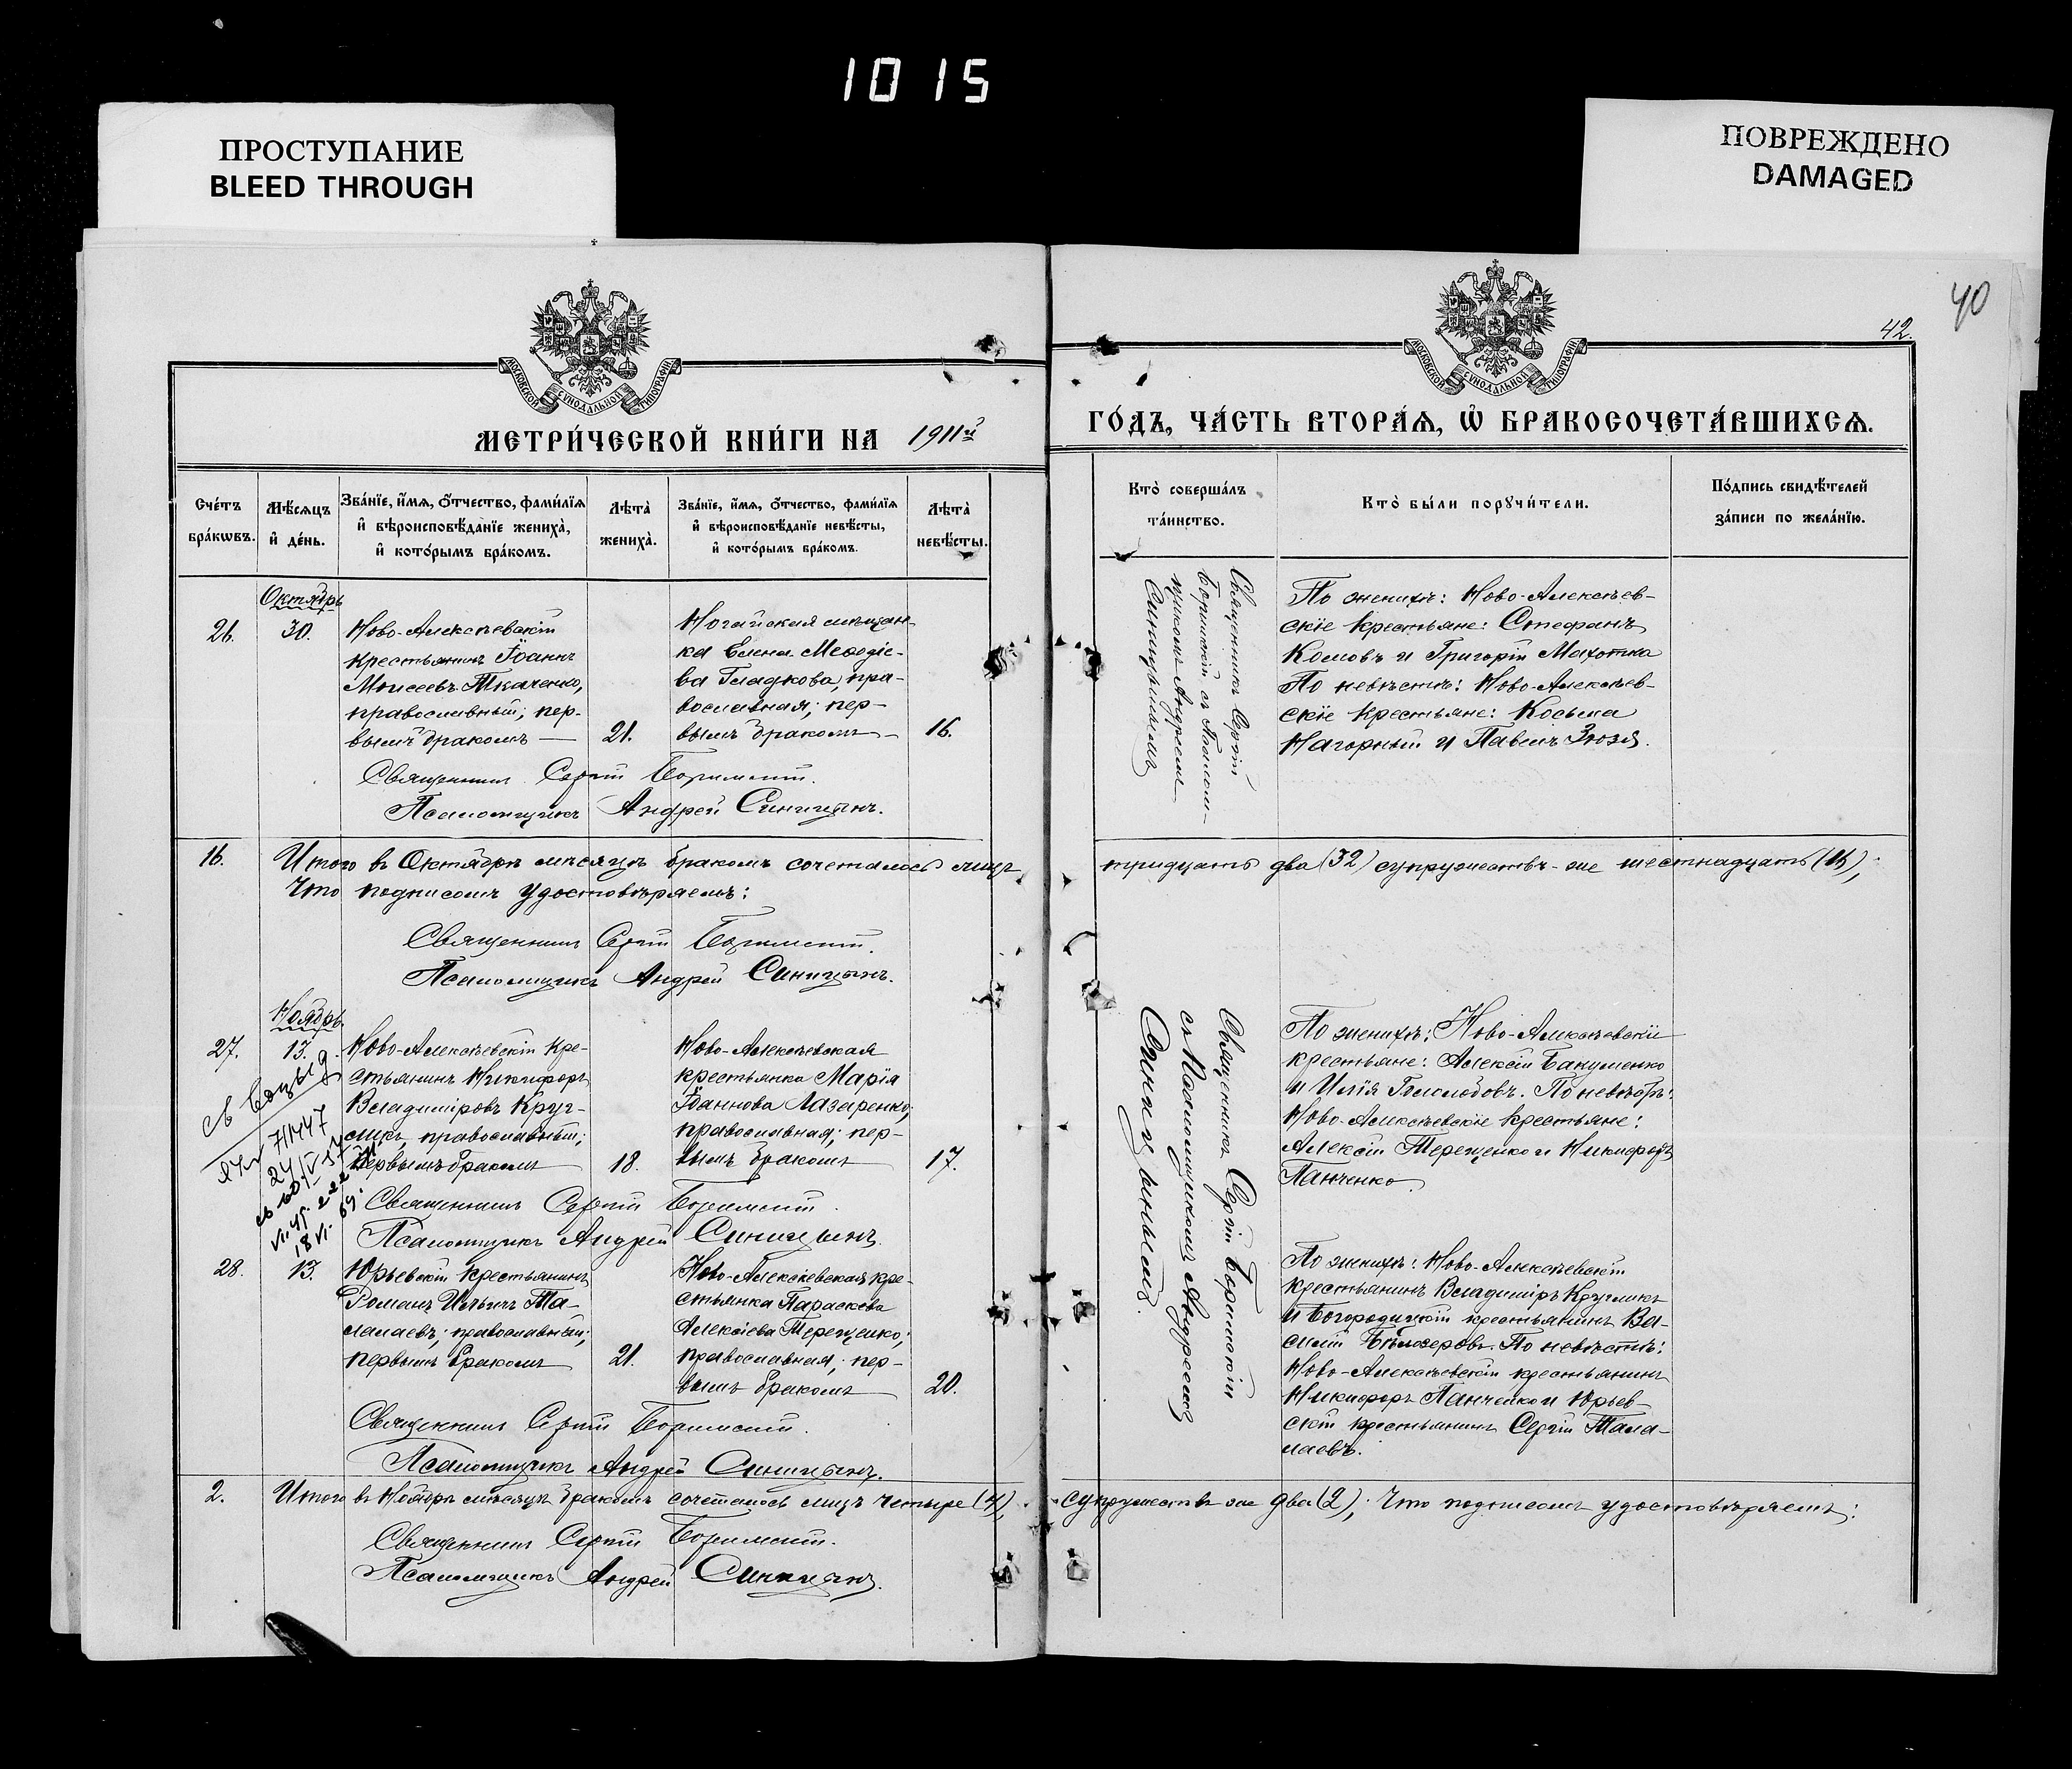 1015
ПРОСТУПАНИЕ
BLEED THROUGH
ПОВРЕЖДЕНО
DAMAGED
40
42.
МОСКОВСКОЙ СУНОДАЛЬНОЙ ТИПОГРАФІИ
МОСКОВСКОЙ СУНОДАЛЬНОЙ ТИПОГРАФІИ
МЕТРИ́ЧЕСКОЙ КНИ́ГИ НА 1911й
ГО́ДЪ, ЧА́СТЬ ВТОРА́Ѧ, Ѡ҆ БРАКОСОЧЕТА́ВШИХСѦ.
Сче́тъ
бра́кѡвъ.
Мѣ́сѧцъ
и҆ де́нь.
Зва́нїе, и҆́мѧ, ѻ҆́тчество, фами́лїѧ
и҆ вѣроисповѣ́данїе жениха̀,
и҆ кото́рымъ бра́комъ.
Лѣ́та̀
жениха̀.
Зва́нїе, и҆́мѧ, ѻ҆́тчество, фами́лїѧ
и҆ вѣроисповѣ́данїе невѣ́сты,
и҆ кото́рымъ бра́комъ.
Лѣ́та̀
невѣ́сты.
Кто̀ соверша́лъ
та́инство.
Кто̀ бы́ли порꙋчи́тели.
По́дпись свидѣ́телей
за́писи по жела́нїю.
Октябрь
26.
30.
Ново-Алексѣевскій
крестьянинъ Іоаннъ
Моисеевъ Ткаченко,
православный; пер-
вымъ бракомъ —
21.
Ногайская мѣщан-
ка Елена Меѳодіе-
ва Гладкова, пра-
вославная; пер-
вымъ бракомъ —
16.
Священникъ Сергій
съ Псалом-
щикомъ Андреемъ
Синицынымъ
По женихѣ: Ново-Алексѣев-
скіе крестьяне: Стефанъ
Комовъ и Григорій Махотка
По невѣстѣ: Ново-Алексѣев-
скіе крестьяне: Косьма
Нагорный и Павелъ Зюзя.
Священникъ Сергій
Псаломщикъ Андрей Синицынъ.
16.
Итого въ Октябрѣ мѣсяцѣ бракомъ сочеталось лицъ
тридцать два (32) супружествъ-же шестнадцать (16),
Что подписомъ удостовѣряемъ:
Священникъ Сергій
Псаломщикъ Андрей Синицынъ.
Ноябрь.
27.
13.
Ново-Алексѣевскій кре-
стьянинъ Никифоръ
Владиміровъ Круг-
ликъ, православный;
первымъ бракомъ
18.
Ново-Алексѣевская
крестьянка Марія
Іоаннова Лазаренко,
православная; пер-
вымъ бракомъ
17.
Священникъ Сергій
съ Псаломщикомъ Андреемъ
Синицынымъ.
По женихѣ: Ново-Алексѣевскіе
крестьяне: Алексій
и Илія По невѣстѣ:
Ново-Алексѣевскіе крестьяне:
Алексій Терещенко и Никифоръ
Панченко.
Священникъ Сергій
Псаломщикъ Андрей Синицынъ.
28.
13.
Юрьевскій крестьянинъ
Романъ Ильичъ Та-
лалаевъ; православный;
первымъ бракомъ
21.
Ново-Алексѣевская кре-
стьянка Параскева
Алексіева Терещенко;
православная, пер-
вымъ бракомъ
20.
По женихѣ: Ново-Алексѣевскій
крестьянинъ Владиміръ Кругликъ
и Богородицкій крестьянинъ Ва-
силій Бѣлозеровъ. По невѣстѣ:
Ново-Алексѣевскій крестьянинъ
Никифоръ Панченко и Юрьев-
скій крестьянинъ Сергій Тала-
лаевъ.
Священникъ Сергій
Псаломщикъ Андрей Синицынъ.
2.
Итого въ Ноябрѣ мѣсяцѣ бракомъ сочеталось лицъ четыре (4),
супружествъ же два (2); Что подписомъ удостовѣряемъ:
Священникъ Сергій
Псаломщикъ Андрей Синицынъ.